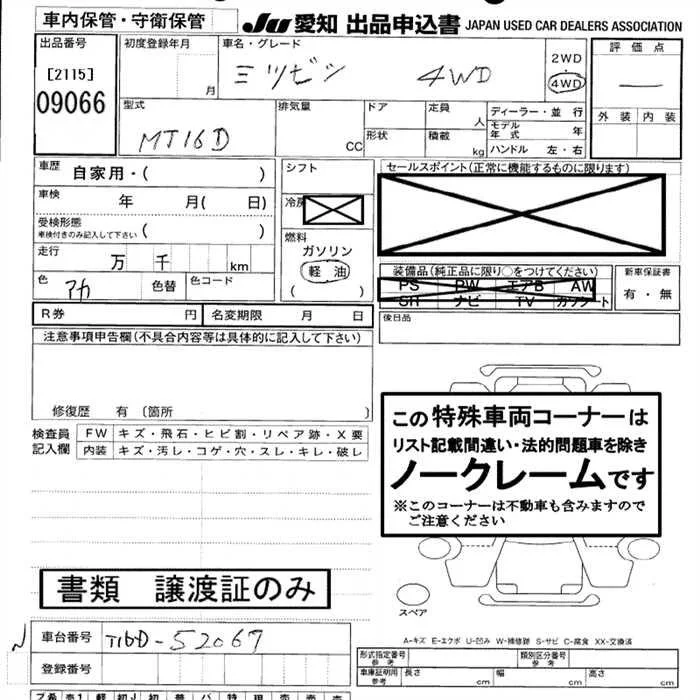 車内保管・守衛保管
JU 愛知 出品申込書 JAPAN USED CAR DEALERS ASSOCIATION
出品番号 初度登録年月 車名・グレード 2WD 評価点
[2115] 月 ミツビシ 4WD 4WD
09066
型式 排気量 ドア 定員 人 ディーラー・並行 外装 内装
MT16D CC 形状 積載 kg モデル年式 年
ハンドル 左・右
車歴 自家用・( ) シフト セールスポイント(正常に機能するものに限ります)
車検 年 月( 日) 冷房
受検形態 ( )
車検付きのみ記入して下さい
燃料
走行 万 千 km ガソリン 装備品(純正品に限り○をつけてください) 新車保証書
軽油 PS PW エアB AW 有・無
色 アカ 色替 色コード ( ) SR ナビ TV カワシート
R券 円 名変期限 月 日 後日品
注意事項申告欄(不具合内容等は具体的に記入して下さい)
修復歴 有(箇所 )
この特殊車両コーナーは
リスト記載間違い・法的問題車を除き
ノークレームです
※このコーナーは不動車も含みますので
ご注意ください
検査員 FW キズ・飛石・ヒビ割・リペア跡・X要
記入欄 内装 キズ・汚レ・コゲ・穴・スレ・キレ・破レ
書類 譲渡証のみ
スペア
A-キズ E-エクボ U-凹み W-補修跡 S-サビ C-腐食 XX-交換済
車台番号 T16D-52067
登録番号
形式指定番号 参考 類別区分番号 参考
車庫証明用 参考 長さ cm 幅 cm 高さ cm